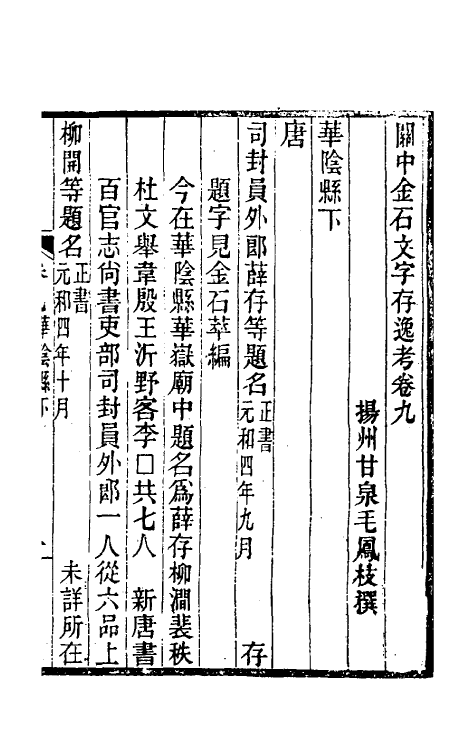 關中金石文字存逸考卷九
揚州甘泉毛鳳枝撰
華陰縣下
唐
司封員外郎薛存等題名正書元和四年九月 存
題字見金石萃編
今在華陰縣華嶽廟中題名爲薛存柳澗裴秩
杜文舉韋殷王沂野客李□共七人 新唐書
百官志尚書吏部司封員外郎一人從六品上
柳開等題名正書元和四年十月 未詳所在
華陰縣下